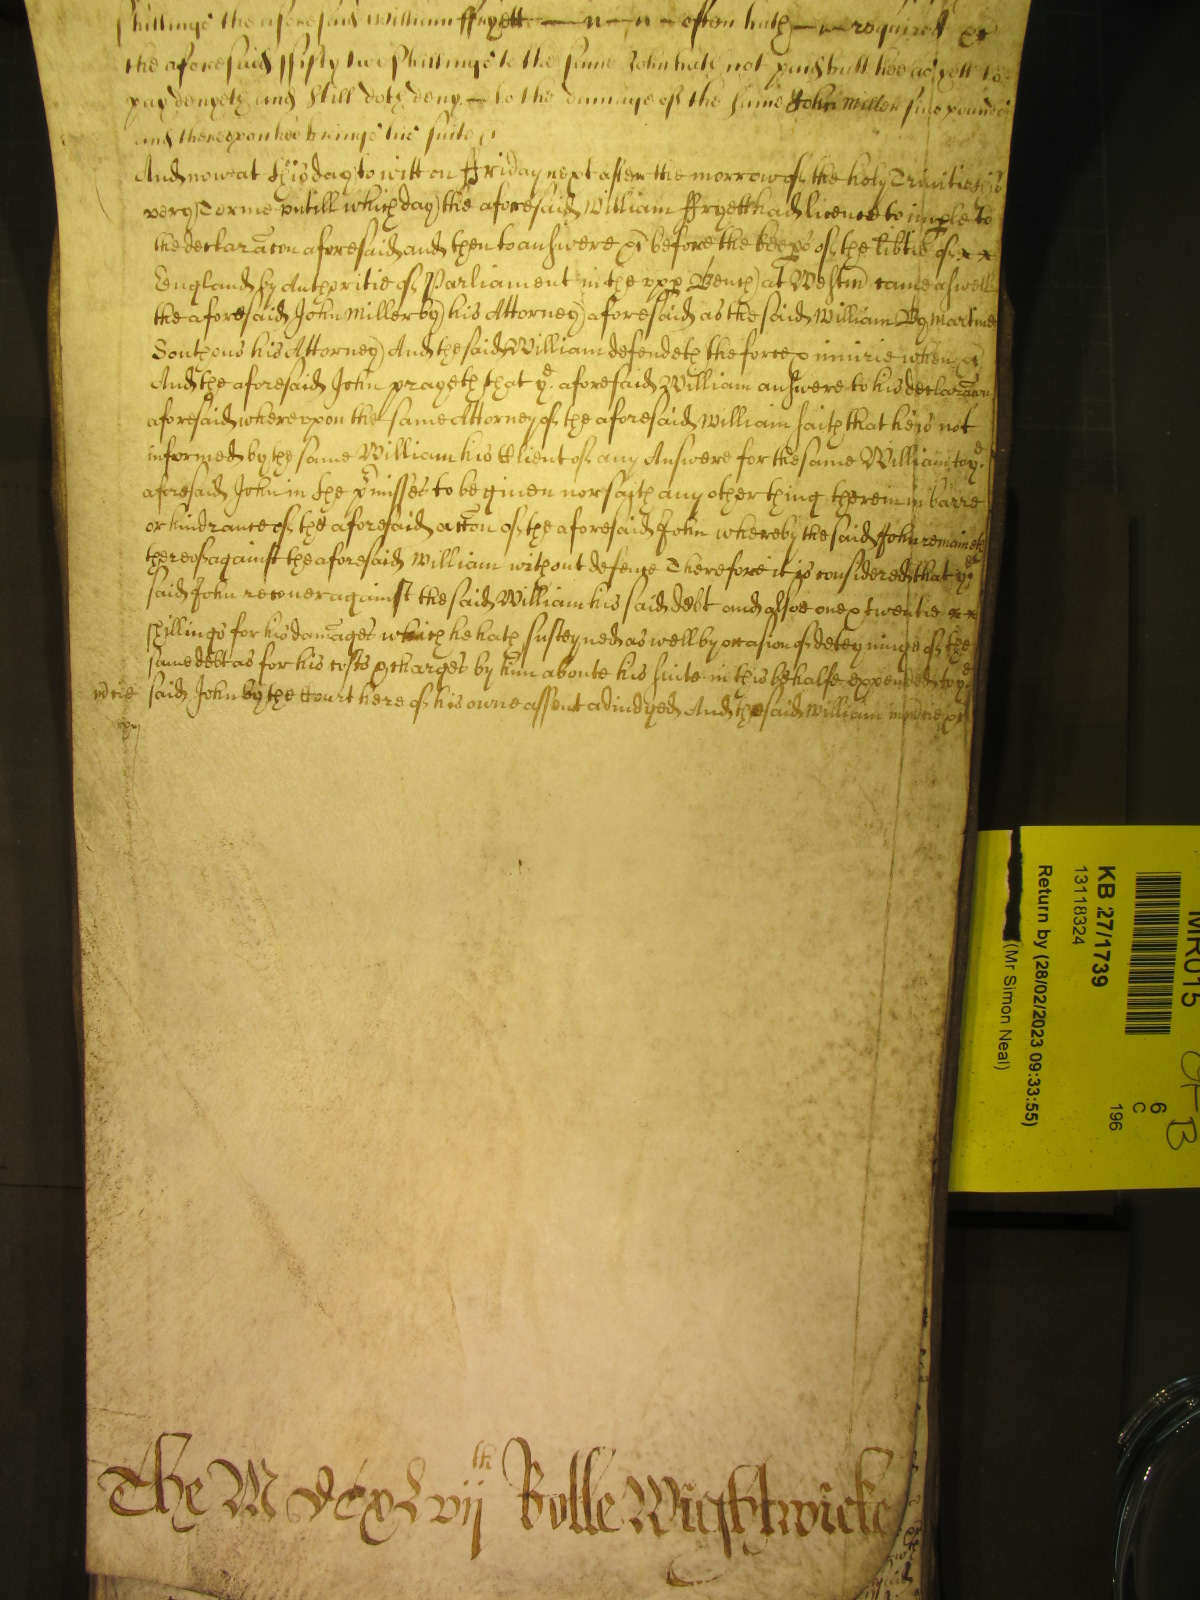 Shillings the aforesaid William ffryett — n — n — often hath — n — required &c
the aforesaid ffifty two Shillings to the same John hath not paid butt hee as yett to
pay denyeth and still doth deny — to the damage of the same John Miller five pounds
and thereupon hee brings his suite &c
And now at this day to witt on ffriday next after the morrow of the holy Trinitie this
very Terme untill which day the aforesaid William ffryett had licence to imple to
the declaracon aforesaid and then to answere &c before the Keeps of the libtie of x x
England by Authoritie of Parliament in the upp Bench at Westm came aswell
the aforesaid John Miller by his Attorney aforesaid as the said William By Martine
Southous his Attorney And the said William defendeth the force & iniurie when &c
And the aforesaid John prayeth that ye aforesaid William answere to his declaracon
aforesaid whereupon the same Attorney of the aforesaid William saith that he is not
informed by the same William his Client of any Answere for the same William to ye
aforesaid John in the pmisses to be given nor saith any other thing therein in barre
or hindrance of the aforesaid accon of the aforesaid John whereby the said John remaineth
thereof against the aforesaid William without defence Therefore it is considered that ye
said John recover against the said William his said debt and alsoe one & twentie x x
shillings for his damages which he hath susteyned as well by occasion of deteyninge of the
same debt as for his costs & charges by him aboute his suite in this behalfe expended to ye
said John by the Court here of his owne assent adiudged And the said William in mcie &c
mcie
The M DCxLvijth Rolle Wightwicke
MR015
KB 27/1739
13118324
Return by (28/02/2023 09:33:55)
(Mr Simon Neal)
6
C
196
B